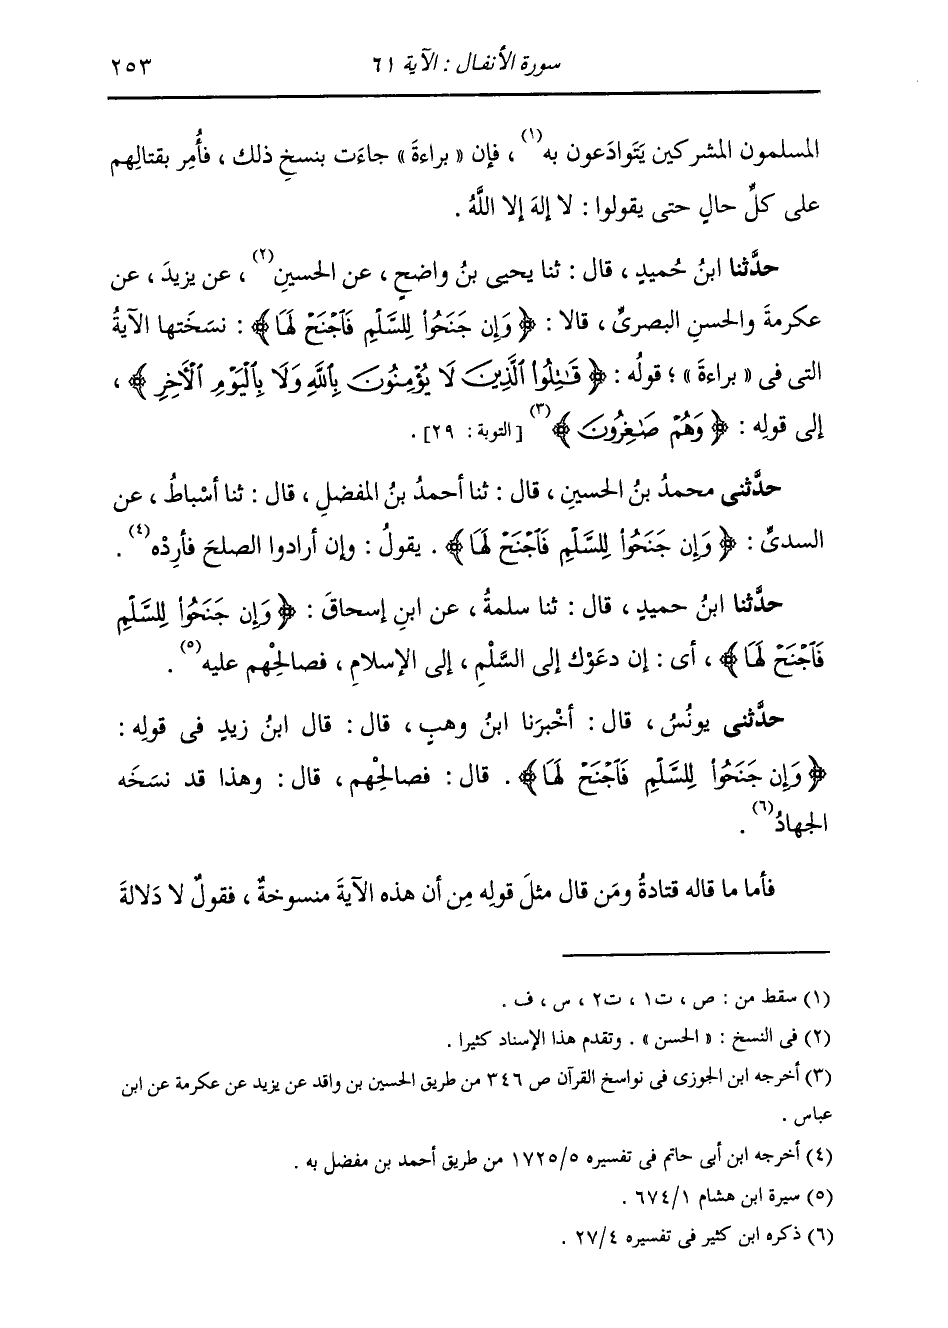 سورة الأنفال : الآية ٦١ ٢٥٣
المسلمون المشركين يَتَوادَعون به(١) ، فإن « براءةَ » جاءَت بنسخِ ذلك ، فأُمِر بقتالِهم
على كلِّ حالٍ حتى يقولوا : لا إلهَ إلا اللَّهُ .
حدَّثنا ابنُ حُميدٍ ، قال : ثنا يحيى بنُ واضحٍ ، عن الحسينِ(٢) ، عن يزيدَ ، عن
عكرمةَ والحسنِ البصرىِّ ، قالا : ﴿ وَإِن جَنَحُوا۟ لِلسَّلْمِ فَٱجْنَحْ لَهَا ﴾ : نسَختها الآيةُ
التى فى « براءةَ » ؛ قولُه : ﴿ قَـٰتِلُوا۟ ٱلَّذِينَ لَا يُؤْمِنُونَ بِٱللَّهِ وَلَا بِٱلْيَوْمِ ٱلْآخِرِ ﴾ ،
إلى قولِه : ﴿ وَهُمْ صَـٰغِرُونَ ﴾(٣) [ التوبة : ٢٩] .
حدَّثنى محمدُ بنُ الحسينِ ، قال : ثنا أحمدُ بنُ المفضلِ ، قال : ثنا أسْباطُ ، عن
السدىِّ : ﴿ وَإِن جَنَحُوا۟ لِلسَّلْمِ فَٱجْنَحْ لَهَا ﴾ . يقولُ : وإن أرادوا الصلحَ فأرِدْه(٤) .
حدَّثنا ابنُ حميدٍ ، قال : ثنا سلمةُ ، عن ابنِ إسحاقَ : ﴿ وَإِن جَنَحُوا۟ لِلسَّلْمِ
فَٱجْنَحْ لَهَا ﴾ ، أى : إن دعَوْك إلى السَّلْمِ ، إلى الإسلامِ ، فصالِحْهم عليه(٥) .
حدَّثنى يونُسُ ، قال : أخْبرَنا ابنُ وهبٍ ، قال : قال ابنُ زيدٍ فى قولِه :
﴿ وَإِن جَنَحُوا۟ لِلسَّلْمِ فَٱجْنَحْ لَهَا ﴾ . قال : فصالِحْهم ، قال : وهذا قد نسَخَه
الجهادُ(٦) .
فأما ما قاله قتادةُ ومَن قال مثلَ قولِه مِن أن هذه الآيةَ منسوخةٌ ، فقولٌ لا دَلالةَ
(١) سقط من : ص ، ت١ ، ت٢ ، س ، ف .
(٢) فى النسخ : « الحسن » . وتقدم هذا الإسناد كثيرا .
(٣) أخرجه ابن الجوزى فى نواسخ القرآن ص ٣٤٦ من طريق الحسين بن واقد عن يزيد عن عكرمة عن ابن
عباس .
(٤) أخرجه ابن أبى حاتم فى تفسيره ١٧٢٥/٥ من طريق أحمد بن مفضل به .
(٥) سيرة ابن هشام ٦٧٤/١ .
(٦) ذكره ابن كثير فى تفسيره ٢٧/٤ .